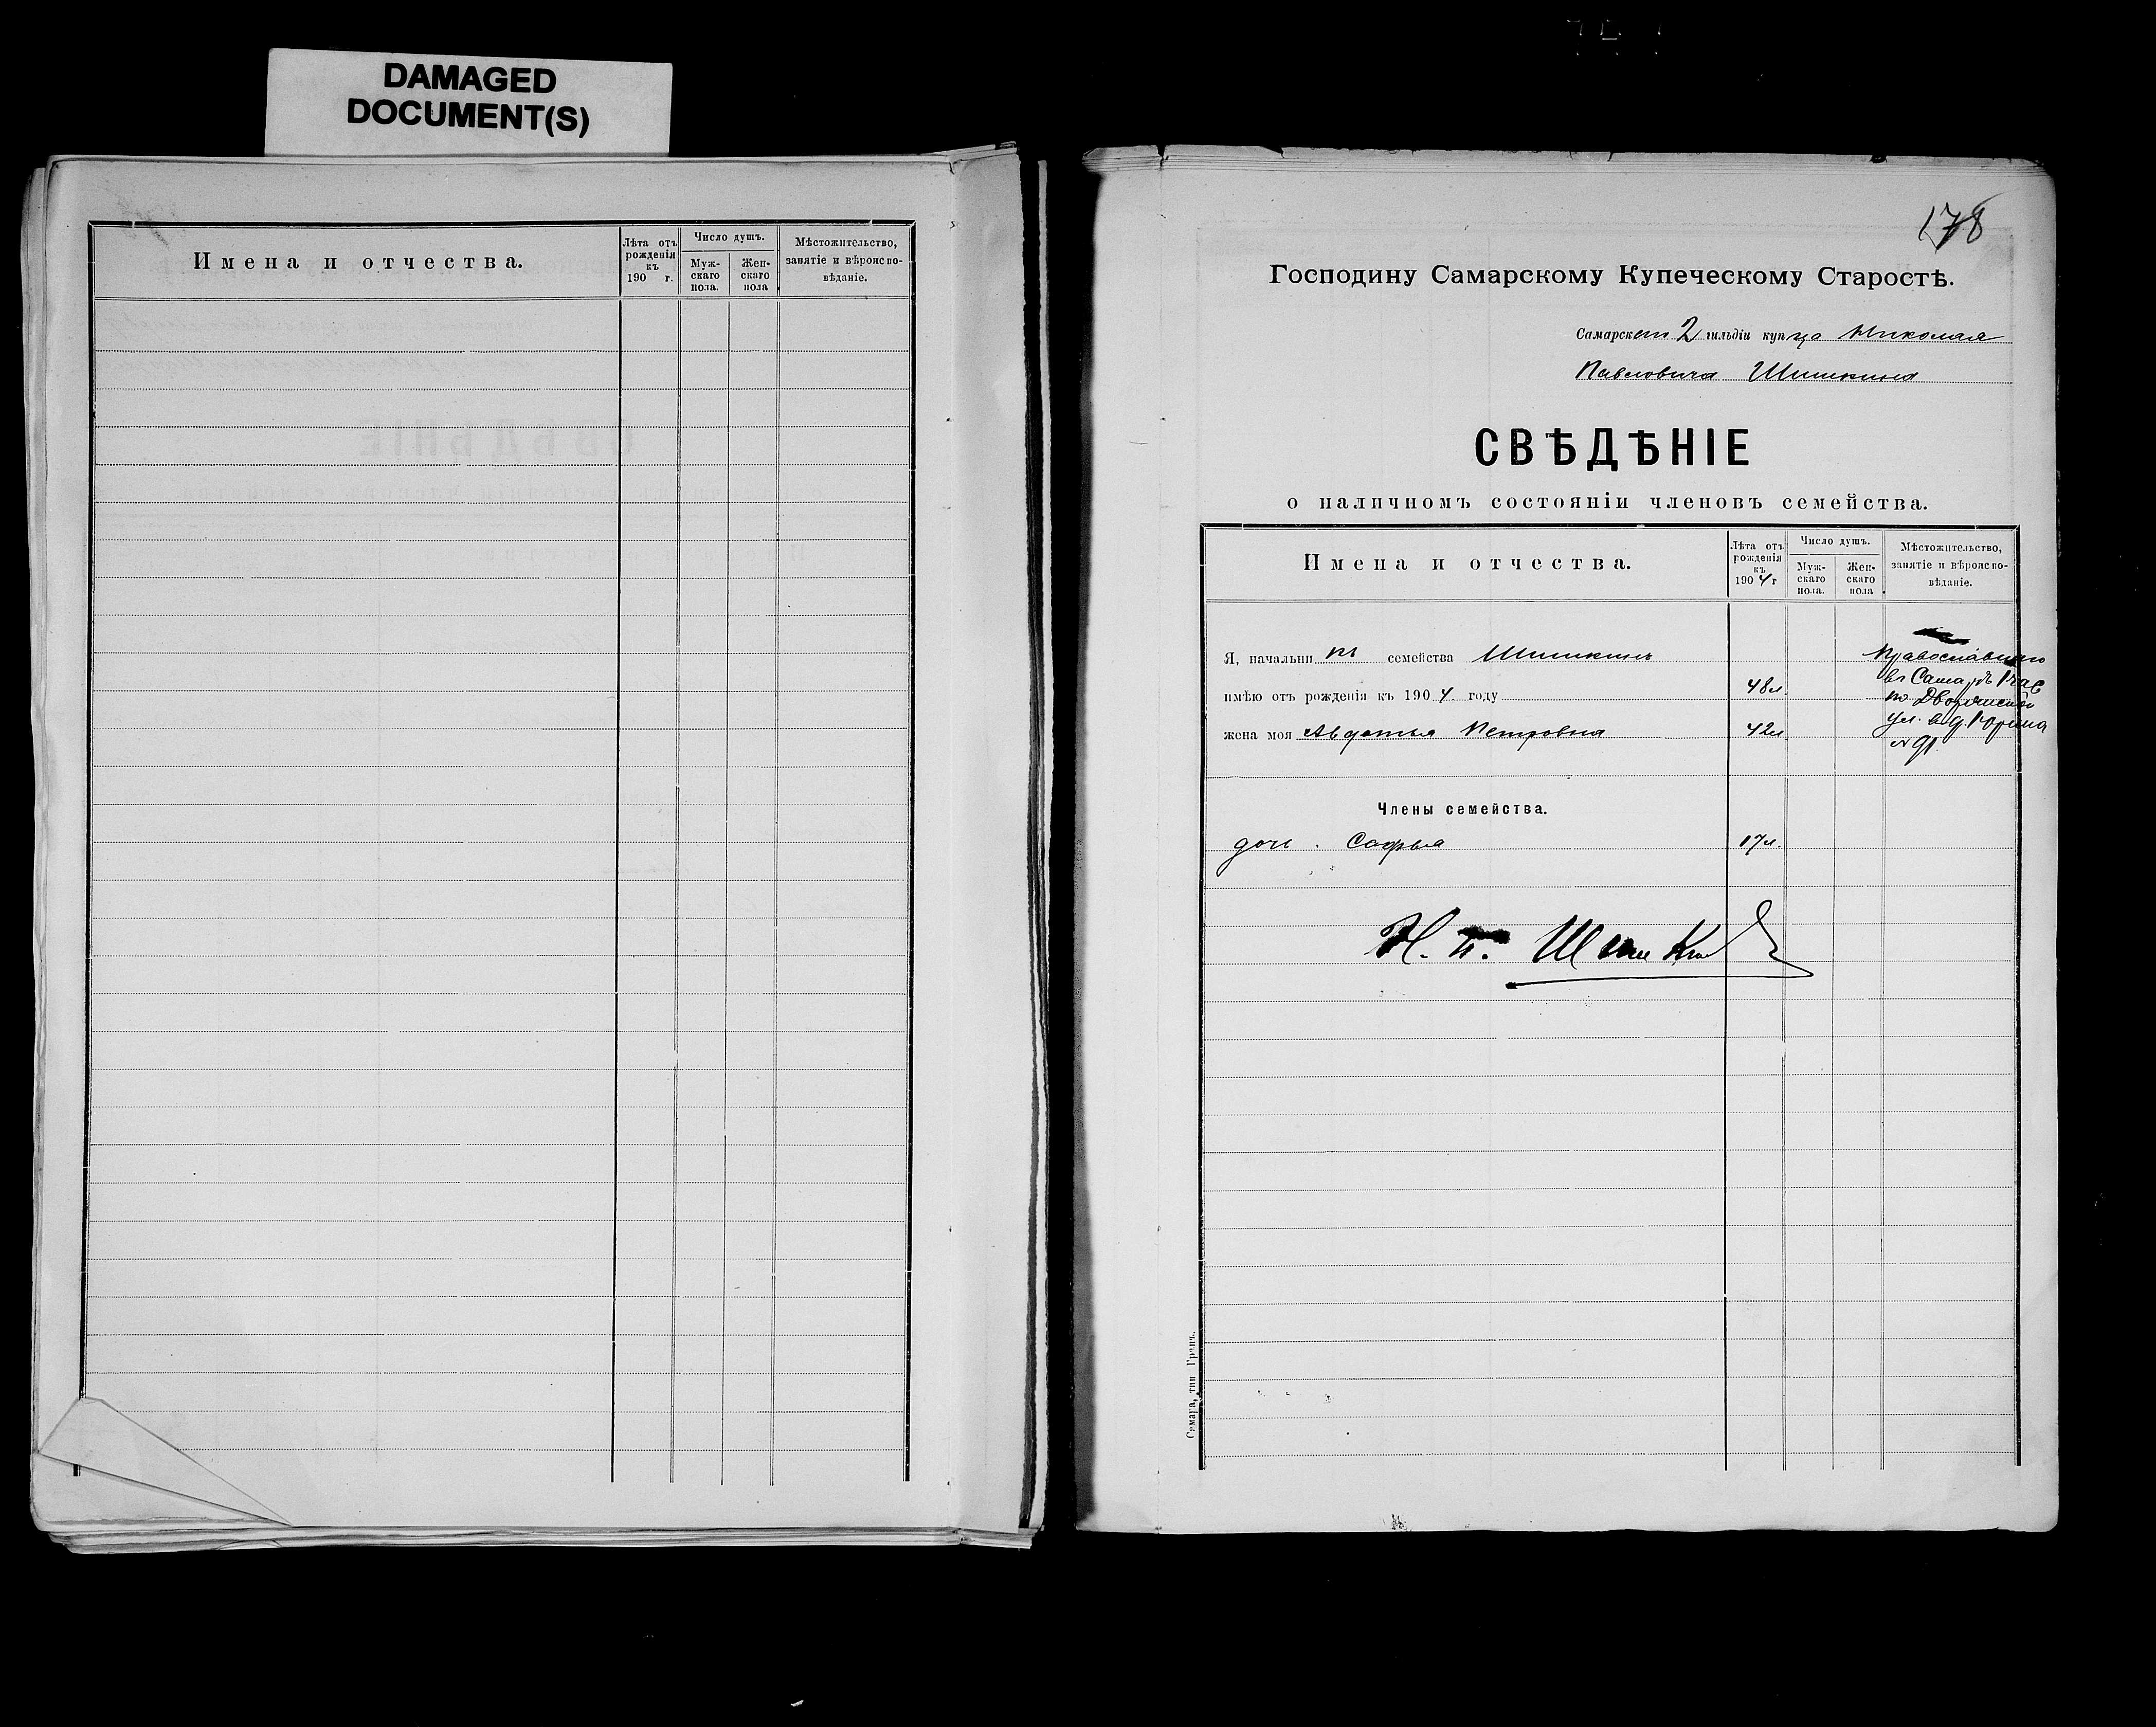 DAMAGED
DOCUMENT(S)
Имена и отчества.
Лѣта отъ рожденія къ 190 г.
Число душъ.
Мужскаго пола.
Женскаго пола
Мѣстожительство, занятіе и вѣроисповѣданіе.
178
Господину Самарскому Купеческому Старостѣ.
Самарской 2 гильдіи купца Николая
Павловича Шишкина
СВѢДѢНІЕ
о наличномъ состояніи членовъ семейства.
Имена и отчества.
Лѣта отъ рожденія къ 1904 г
Число душъ.
Мужскаго пола.
Женскаго пола
Мѣстожительство, занятіе и вѣроисповѣданіе.
Я, начальникъ семейства Шишкинъ
Православнаго
имѣю отъ рожденія къ 1904 году 48 л
въ Самарѣ
по Дворянской
жена моя Авдотья Петровна 42 л
ул. в д.
№ 91
Члены семейства.
дочь . Софья 17 л.
Н. П. Шишкин
Самара, тип Гранъ.